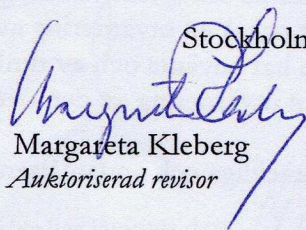 Stockholm
Margareta Kleberg
Auktoriserad revisor